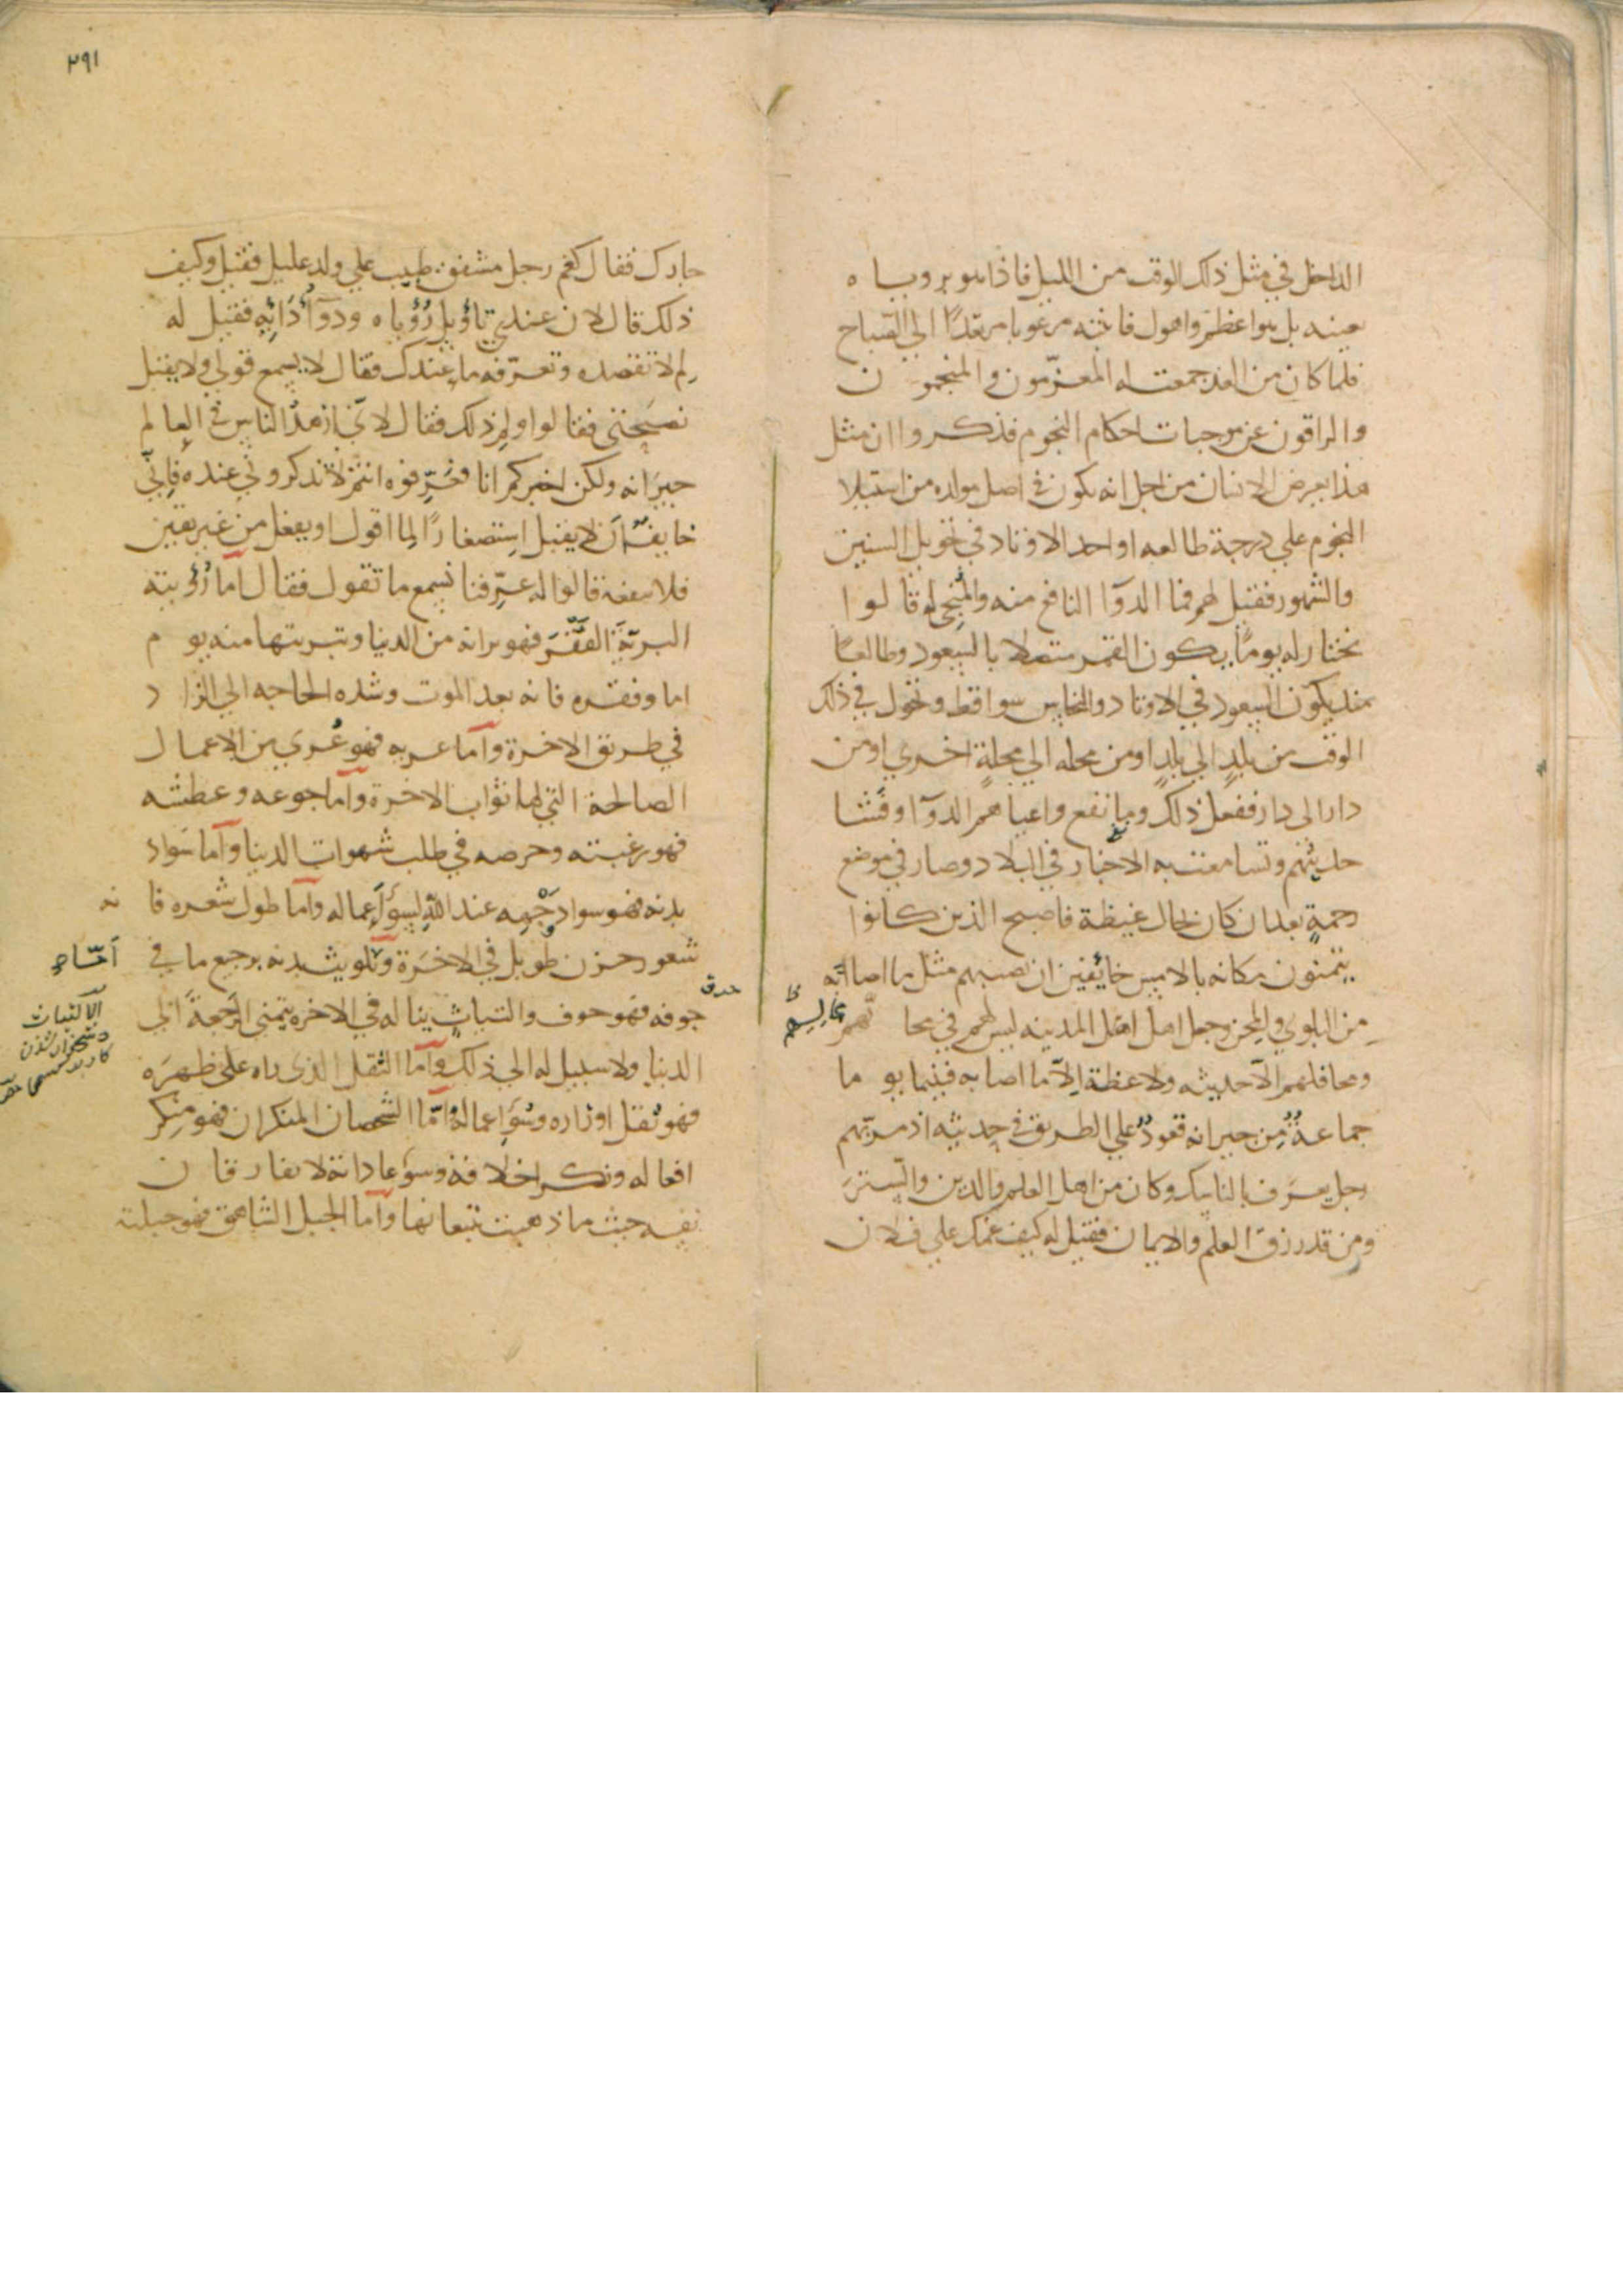 الداخل في مثل ذلك الوقت من الليل فاذا هو برويا ه
بعينه بل هو اعظم واهول فانتبه مرعوبا مرتعدًا الي الصباح
فلما كان من الغد جمعت له المعزّمون و المنجمو ن
والراقون عن موجبات احكام النجوم فذكروا ان مثل
هذا يعرض الانسان من اجل انه يكون في اصل مولده من استيلا
النجوم علي درجة طالعه او احد الاوتاد في تحويل السنين
والشهور فقيل لهم فما الدوآ النافع منه والمُنجي له قالوا
نختار له يومًا يكون القمر متصلا بالسعود وطالعًا
يكون السعود في الاوتاد والنحاس سواقط وتحول في ذلك
الوقت من بلدٍ الي بلدٍ او من محله الي محلةٍ اخري او من
دار الى دار ففعل ذلك وما نفع واعياهم الدوآ وفشا
حديثهم وتسامعت به الاخبار في البلاد وصار في موضع
رحمةٍ بعد ان كان بحال غبطة فاصبح الذين كانوا
يتمنون مكانه بالامس خائفين ان يصيبهم مثل ما اصابه
من البلوي والمحن وجعل اهل اهل المدينه ليس لهم في محا لّهم
مجالسهم
ومحافلهم الّا حديثه ولا عظة الّا ما اصابه فبينما يو ما
جماعةٌ من جيرانه قعودٌ علي الطريق في حديثه اذ مرّ بهم
رجل يعرف بالناسك وكان من اهل العلم والدين والستر
ومن قد رزق العلم والايمان فقيل له كيف غمك علي فلان
٢٩١
جارك فقال كغم رجل مشفق طبيب علي ولد عليل فقيل وكيف
ذلك قال لان عندي تأويل رُؤياه ودوآ دَائِهِ فقيل له
لِم لا تقصده وتعرّفه ما عندك فقال لا يسمع قولي ولا يقبل
نصيحتي فقالوا ولِم ذلك فقال لانّي ازهد الناس في العالم
جيرانه ولكن اخبركم انا فعرّفوه انتم لا تذكروني عنده فإنّي
خايف ان لا يقبل استصغارًا لما اقول او يفعل من غير يقين
فلا ينفعه قالوا له عرّفنا نسمع ما تقول فقال اما رُؤيته
البريّة القفر فهو براته من الدنيا وتبريتها منه يو م
اما وفقره فانه بعد الموت وشده الحاجه الي الزا د
في طريق الاخرة وآما عريه فهو عُري من الاعمال
الصالحة التي لها ثواب الاخرة وآما جوعه وعطشه
فهو رغبته وحرصه في طلب شهوات الدنيا وآما سَواد
بدنه فهو سواد وجهه عند الله لسوٓء اعماله وآما طول شعره فا نه
شعور حزن طويل في الاخرة وتلويث بدنه برجيع ما في
جوفه فهو خوف والتباث يناله في الاخره يتمنى الرجعة الي
الدنيا ولا سبيل له الي ذلك وآما الثقل الذى راه على ظهره
فهو ثقل اوزاره وسُوٓء اعماله امّا الشخصان المنكران فهو منكر
افعاله ونكر اخلاقه وسوٓء عاداته لا يفارقا ن
نفسه حيث ما ذهبت تتبعانها وآما الجبل الشاهق فهو جبلته